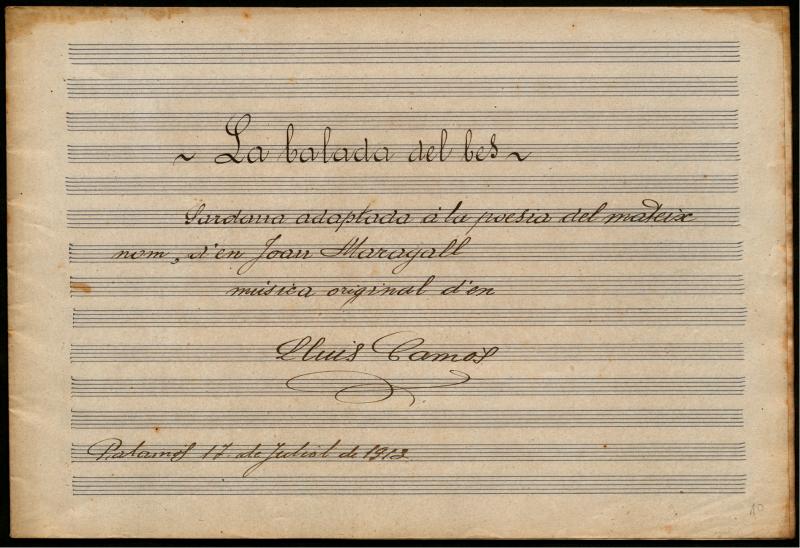 ~ La balada del bes ~
Sardana adaptada á la poesia del mateix
nom, d'en Joan Maragall
música original d'en
Lluis Camós
Palamós 17 de Juliol de 1912
10